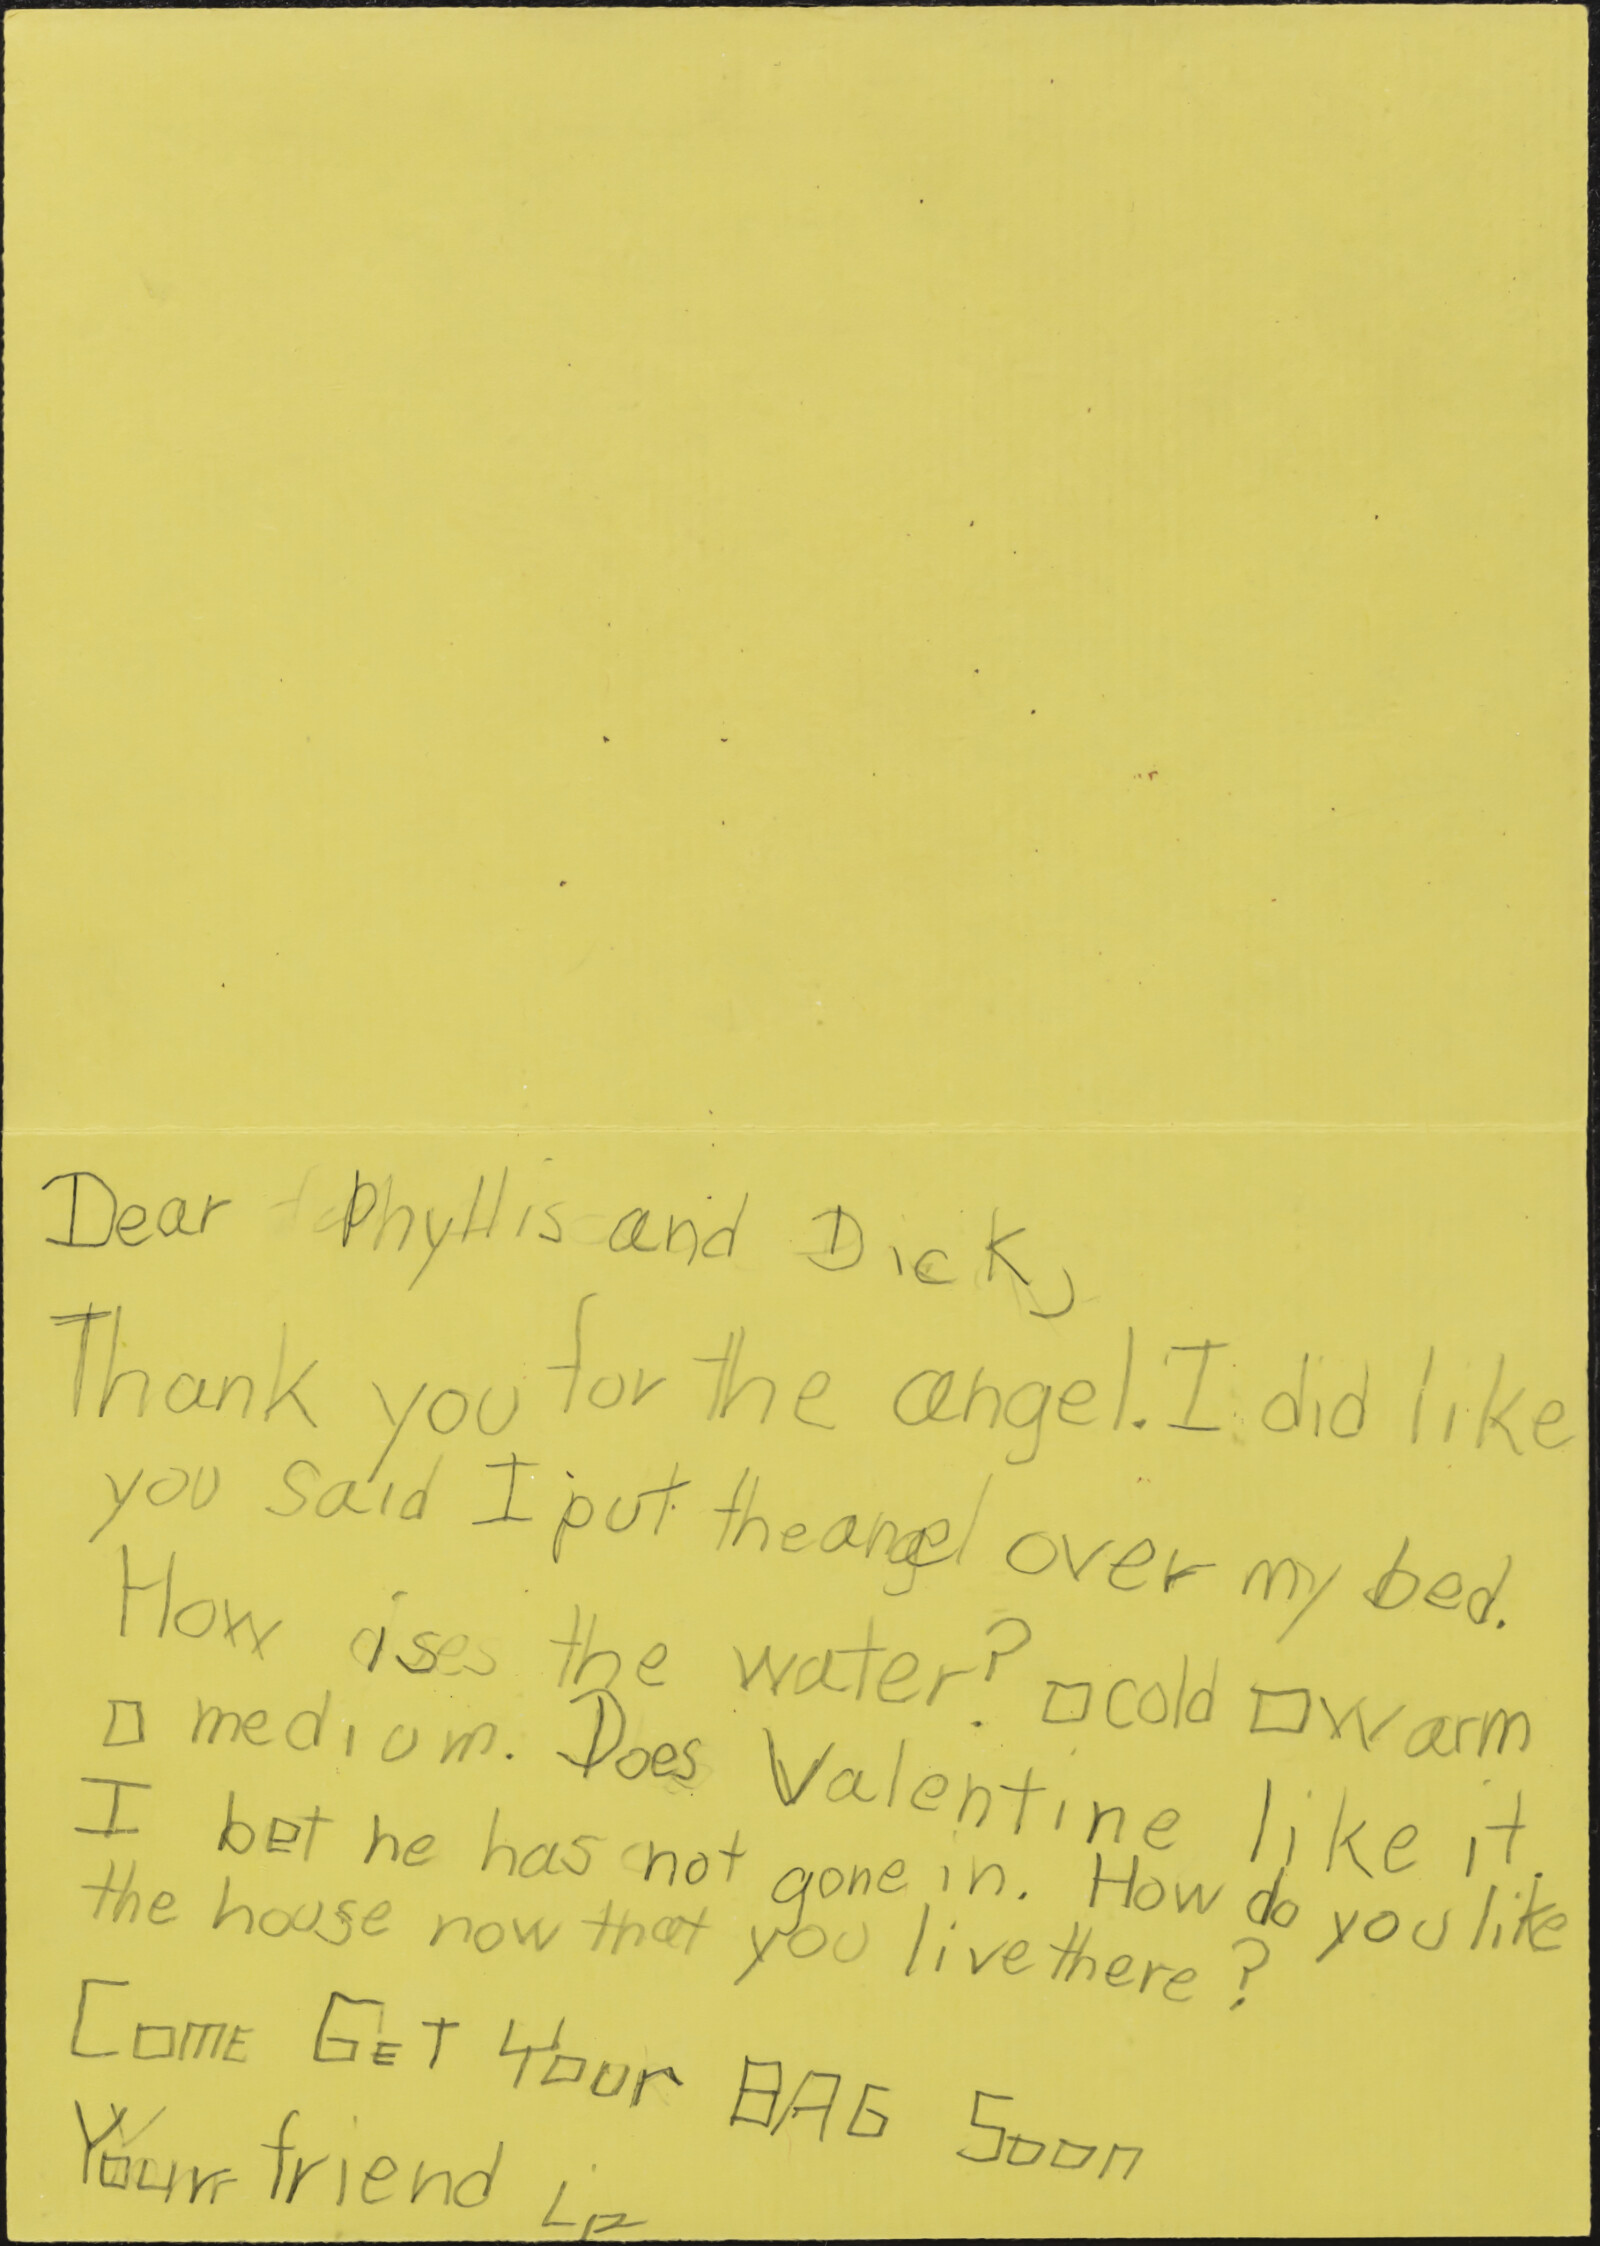 Dear Phyllis and Dick,
Thank you for the angel. I did like
you said I put the angel over my bed.
How is the water? □ cold □ warm
□ medium. Does Valentine like it.
I bet he has not gone in. How do you like
the house now that you live there?
COME GET YOUR BAG SOON
Your friend